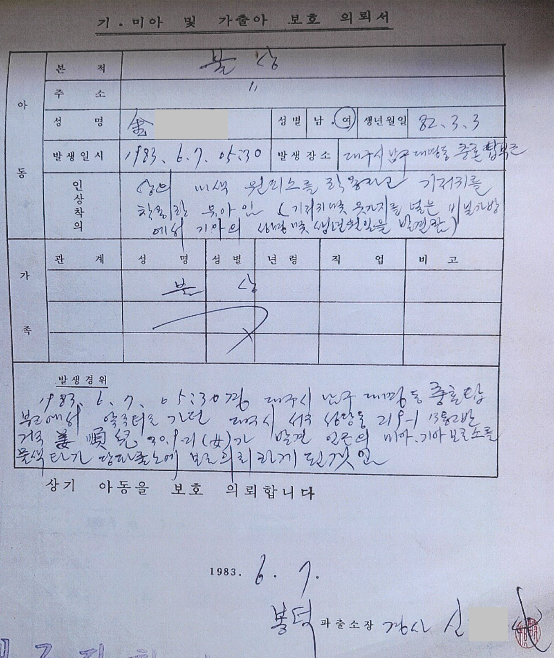 기·미아 및 가출아 보호 의뢰서
아동
본적 불상
주소 〃
성명 金 성별 남.여 생년월일 82.3.3
발생일시 1983.6.7. 05:30 발생장소 대구시 남구 대명동 충혼탑부근
인상착의 상의 색 원피스를 착용하고 기저귀를
착용한 여아인 (기저귀및 옷가지를 넣은 비닐가방
에서 기아의 성명및 생년월일을 발견함)
가족
관계 성명 성별 년령 직업 비고
불상
발생경위
1983. 6. 7. 05:30경 대구시 남구 대명동 충혼탑
부근에서 약수터로 가던 대구시 서구 동 219-1 13통2반
거주 姜順 (女)가 발견 인근의 미아.기아보호소를
물색타가 당파출소에 보호의뢰하게 된것임
상기 아동을 보호 의뢰합니다
1983. 6. 7.
봉덕 파출소장 경사 신